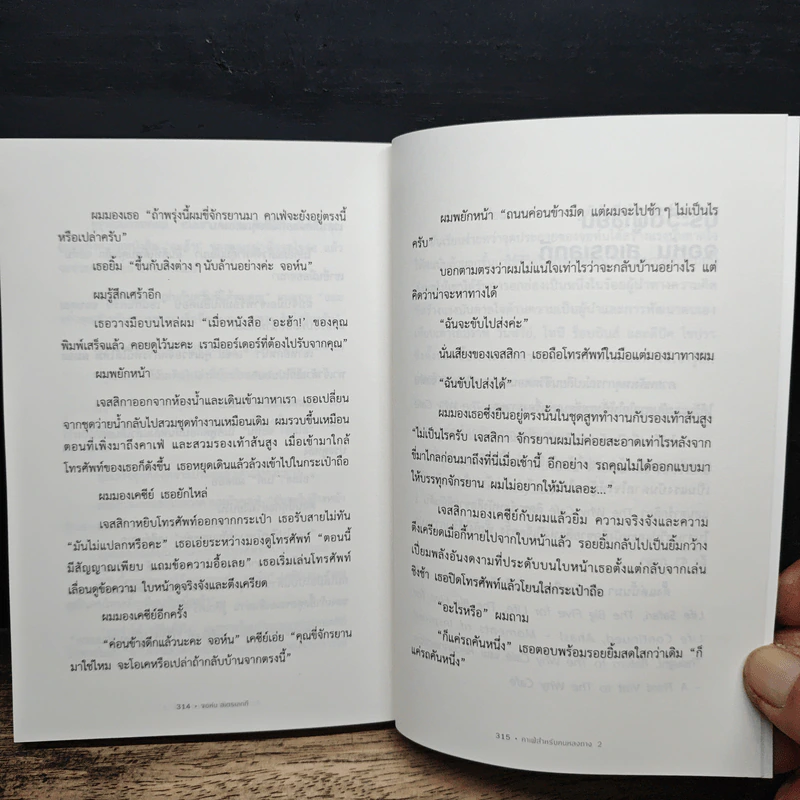 ผมมองเธอ “ถ้าพรุ่งนี้ผมขี่จักรยานมา คาเฟ่จะยังอยู่ตรงนี้
หรือเปล่าครับ”
เธอยิ้ม “ขึ้นกับสิ่งต่างๆ นับล้านอย่างค่ะ จอห์น”
ผมรู้สึกเศร้าอีก
เธอวางมือบนไหล่ผม “เมื่อหนังสือ ‘อะฮ้า!’ ของคุณ
พิมพ์เสร็จแล้ว คอยดูไว้นะคะ เรามีออร์เดอร์ที่ต้องไปรับจากคุณ”
ผมพยักหน้า
เจสสิกาออกจากห้องน้ำและเดินเข้ามาหาเรา เธอเปลี่ยน
จากชุดว่ายน้ำกลับไปสวมชุดทำงานเหมือนเดิม ผมรวบขึ้นเหมือน
ตอนที่เพิ่งมาถึงคาเฟ่ และสวมรองเท้าส้นสูง เมื่อเข้ามาใกล้
โทรศัพท์ของเธอก็ดังขึ้น เธอหยุดเดินแล้วล้วงเข้าไปในกระเป๋าถือ
ผมมองเคซีย์ เธอยักไหล่
เจสสิกาหยิบโทรศัพท์ออกจากกระเป๋า เธอรับสายไม่ทัน
“มันไม่แปลกหรือคะ” เธอเอ่ยระหว่างมองดูโทรศัพท์ “ตอนนี้
มีสัญญาณเพียบ แถมข้อความอื้อเลย” เธอเริ่มเล่นโทรศัพท์
เลื่อนดูข้อความ ใบหน้าดูจริงจังและตึงเครียด
ผมมองเคซีย์อีกครั้ง
“ค่อนข้างดึกแล้วนะคะ จอห์น” เคซีย์เอ่ย “คุณขี่จักรยาน
มาใช่ไหม จะโอเคหรือเปล่าถ้ากลับบ้านจากตรงนี้”
314 • จอห์น สเตรเลกกี
ผมพยักหน้า “ถนนค่อนข้างมืด แต่ผมจะไปช้าๆ ไม่เป็นไร
ครับ”
บอกตามตรงว่าผมไม่แน่ใจเท่าไรว่าจะกลับบ้านอย่างไร แต่
คิดว่าน่าจะหาทางได้
“ฉันจะขับไปส่งค่ะ”
นั่นเสียงของเจสสิกา เธอถือโทรศัพท์ในมือแต่มองมาทางผม
“ฉันขับไปส่งได้”
ผมมองเธอซึ่งยืนอยู่ตรงนั้นในชุดสูททำงานกับรองเท้าส้นสูง
“ไม่เป็นไรครับ เจสสิกา จักรยานผมไม่ค่อยสะอาดเท่าไรหลังจาก
ขี่มาไกลก่อนมาถึงที่นี่เมื่อเช้านี้ อีกอย่าง รถคุณไม่ได้ออกแบบมา
ให้บรรทุกจักรยาน ผมไม่อยากให้มันเลอะ...”
เจสสิกามองเคซีย์กับผมแล้วยิ้ม ความจริงจังและความ
ตึงเครียดเมื่อกี้หายไปจากใบหน้าแล้ว รอยยิ้มกลับไปเป็นยิ้มกว้าง
เปี่ยมพลังอันงดงามที่ประดับบนใบหน้าเธอตั้งแต่กลับจากเล่น
ชิงช้า เธอปิดโทรศัพท์แล้วโยนใส่กระเป๋าถือ
“อะไรหรือ” ผมถาม
“ก็แค่รถคันหนึ่ง” เธอตอบพร้อมรอยยิ้มสดใสกว่าเดิม “ก็
แค่รถคันหนึ่ง”
315 • คาเฟ่สำหรับคนหลงทาง 2